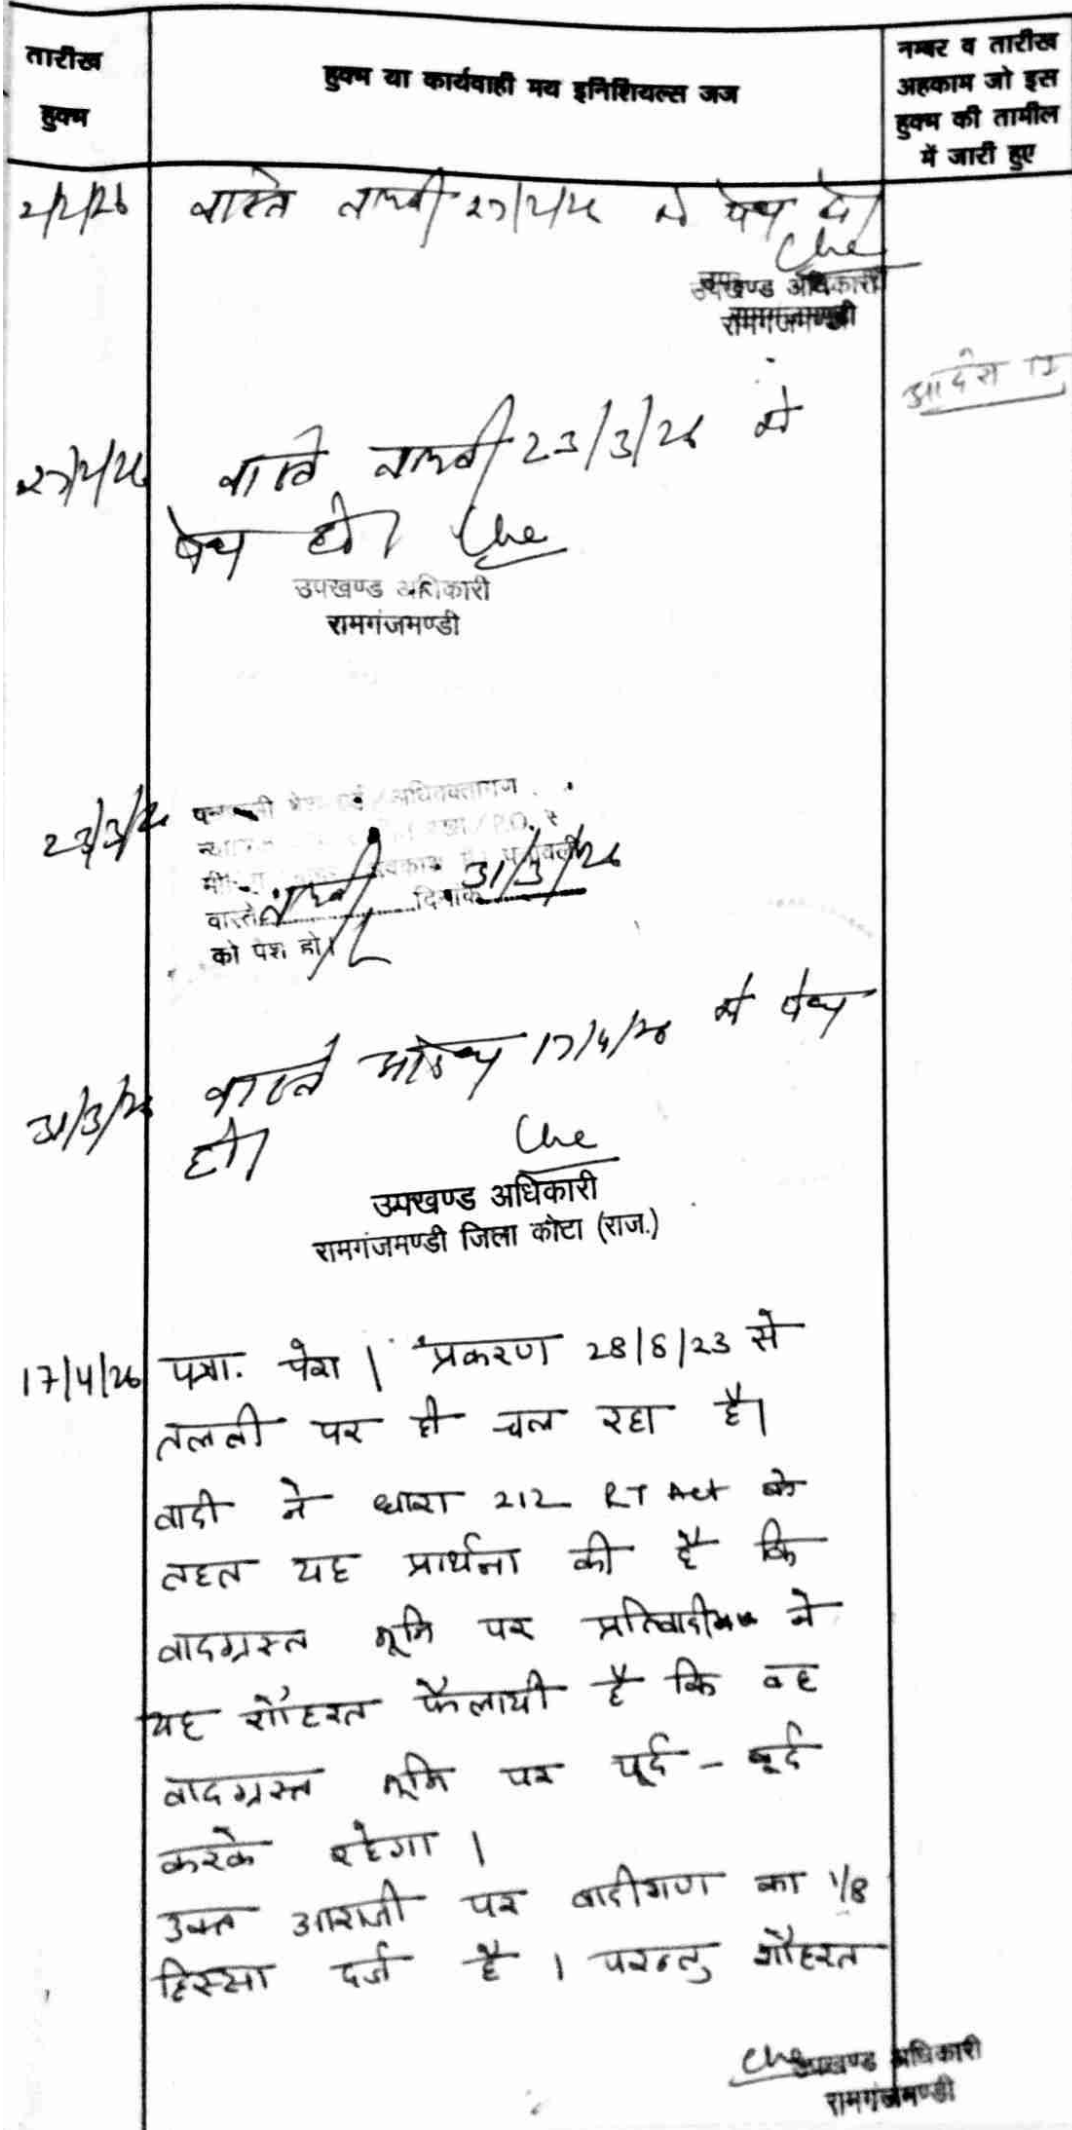 तारीख
हुक्म
हुक्म या कार्यवाही मय इनिशियल्स जज
नम्बर व तारीख
अहकाम जो इस
हुक्म की तामील
में जारी हुए
2/2/26 वास्ते तलवी 27/2/26 को पेश हो।
उपखण्ड अधिकारी
रामगंजमण्डी
आदेश
27/2/26 वास्ते तलवी 23/3/26 को
पेश हो।
उपखण्ड अधिकारी
रामगंजमण्डी
23/3/26 अधिवक्तागण
P.O.
अवकाश पत्रावली
वास्ते तलवी दिनांक 31/3/26
को पेश हो।
31/3/26 वास्ते 17/4/26 को पेश
हो।
उपखण्ड अधिकारी
रामगंजमण्डी जिला कोटा (राज.)
17/4/26 पत्रा. पेश। प्रकरण 28/6/23 से
तलवी पर ही चल रहा है।
वादी ने धारा 212 RT Act के
तहत यह प्रार्थना की है कि
वादग्रस्त भूमि पर प्रतिवादी ने
यह शौहरत फैलायी है कि वह
वादग्रस्त भूमि पर खुर्द - बुर्द
करके रहेगा।
उक्त आराजी पर वादीगण का 1/8
हिस्सा दर्ज है। परन्तु शौहरत
उपखण्ड अधिकारी
रामगंजमण्डी